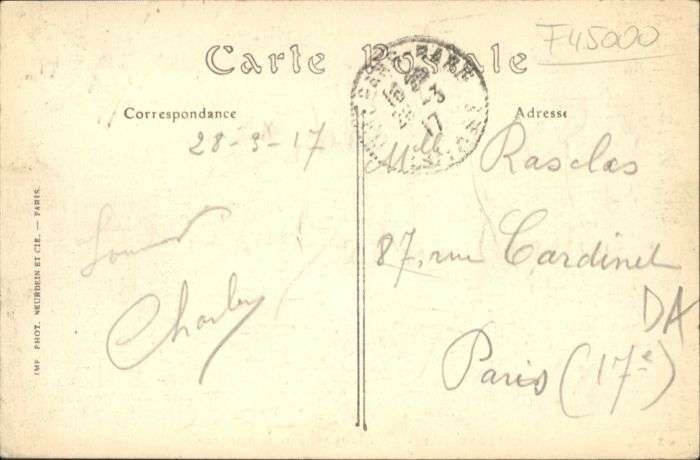 F45000
Carte Postale
Correspondance
Adresse
28-3-17
Mlle Rasclas
87, rue Cardinet
Paris (17e)
DA
Charley
IMP. PHOT. NEURDEIN ET CIE. — PARIS.